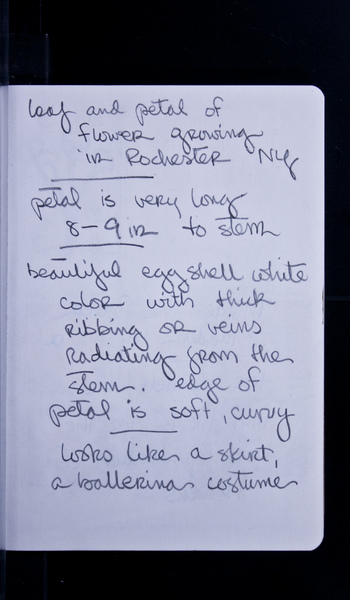 leaf and petal of
flower growing
in Rochester NY
petal is very long
8-9 in to stem
beautiful eggshell white
color with thick
ribbing or veins
radiating from the
stem. edge of
petal is soft, curvy
looks like a skirt,
a ballerina costume